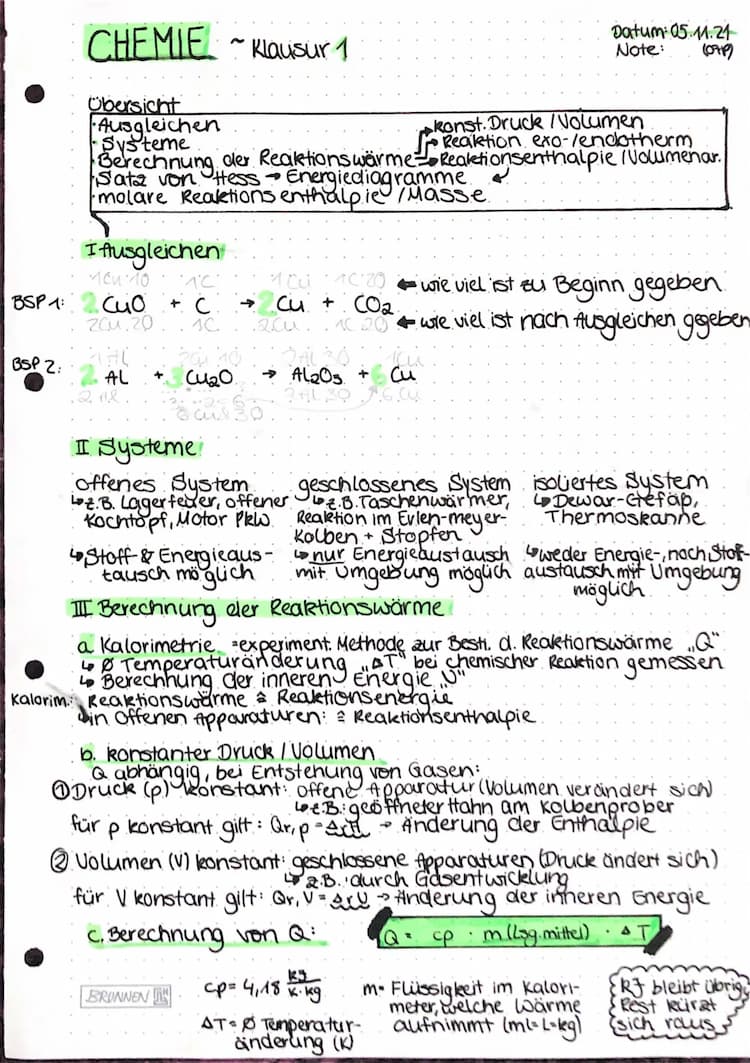 CHEMIE ~ Klausur 1
Datum: 05.11.21
Note: (04P)
Übersicht
·Ausgleichen
·Systeme
·Berechnung der Reaktionswärme
konst. Druck / Volumen
Reaktion exo-/endotherm
Reaktionsenthalpie / Volumenar.
·Satz von Hess → Energiediagramme
·molare Reaktionsenthalpie / Masse
I Ausgleichen
1Cu 1O 1C 1Cu 1C 2O ← wie viel ist zu Beginn gegeben
BSP 1: 2 CuO + C → 2 Cu + CO2
2Cu, 2O 1C 2Cu 1C 2O ← wie viel ist nach Ausgleichen gegeben
1Al 2Cu 1O 2Al 3O 1Cu
BSP 2: 2 Al + 3 Cu2O → Al2O3 + 6 Cu
2Al 2Al 3O 6Cu
6Cu 3O
II Systeme
offenes System geschlossenes System isoliertes System
↳z.B. Lagerfeuer, offener ↳z.B. Taschenwärmer, ↳Dewar-Gefäß,
Kochtopf, Motor PKW Reaktion im Erlen-meyer- Thermoskanne
Kolben + Stopfen
↳Stoff- & Energieaus- ↳nur Energieaustausch ↳weder Energie-, noch Stoff-
tausch möglich mit Umgebung möglich austausch mit Umgebung
möglich
III Berechnung der Reaktionswärme
a Kalorimetrie =experiment. Methode zur Besti. d. Reaktionswärme „Q“
↳ Ø Temperaturänderung „ΔT“ bei chemischer Reaktion gemessen
↳ Berechnung der inneren Energie „U“
Kalorim.: Reaktionswärme ≙ Reaktionsenergie
↳in offenen Apparaturen: ≙ Reaktionsenthalpie
b. konstanter Druck / Volumen
Q abhängig, bei Entstehung von Gasen:
① Druck (p) konstant: offene Apparatur (Volumen verändert sich)
↳z.B.: geöffneter Hahn am Kolbenprober
für p konstant gilt: Qr,p = ΔrH → Änderung der Enthalpie
② Volumen (V) konstant: geschlossene Apparaturen (Druck ändert sich)
↳ z.B. durch Gasentwicklung
für V konstant gilt: Qr,V = ΔrU → Änderung der inneren Energie
c. Berechnung von Q: Q = cp · m(Lsg.mittel) · ΔT
cp = 4,18 kJ/K·kg
m = Flüssigkeit im Kalori-
meter, welche Wärme
aufnimmt (ml=L=kg)
KJ bleibt übrig,
Rest kürzt
sich raus
ΔT = Ø Temperatur-
änderung (K)
BRUNNEN